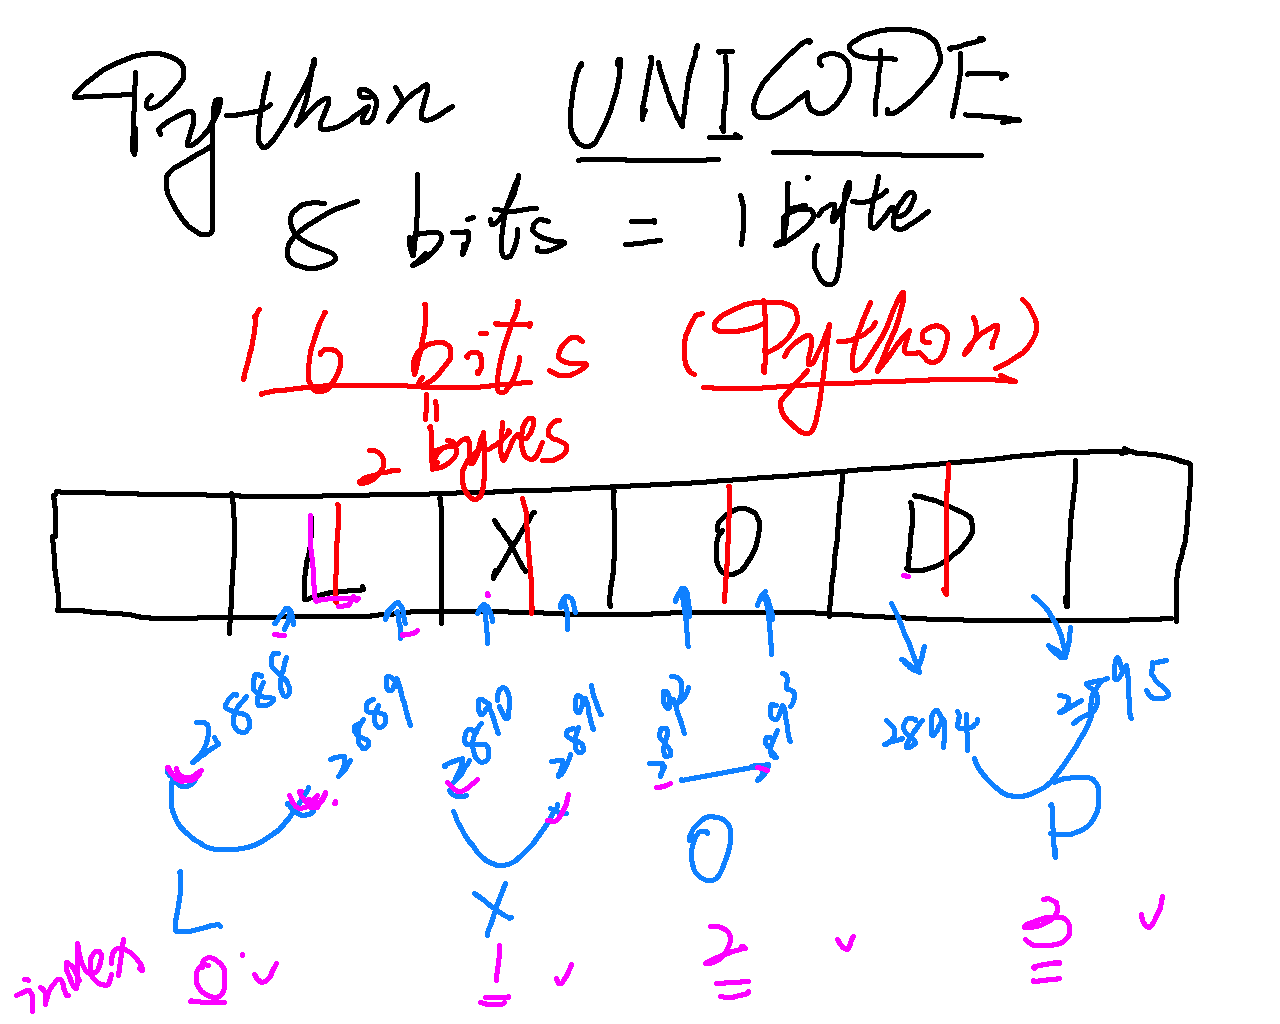 Python UNICODE
8 bits = 1 byte
16 bits (Python)
"
2 bytes
L X O D
2888 2889 2890 2891 2892 2893 2894 2895
L X O D
index 0 1 2 3